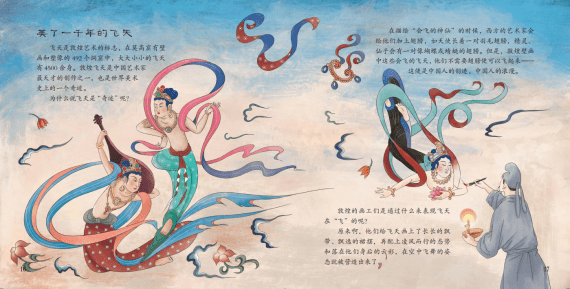 美了一千年的飞天
飞天是敦煌艺术的标志，在莫高窟有壁
画和塑像的492个洞窟中，大大小小的飞天
有4500余身。敦煌飞天是中国艺术家
最天才的创作之一，也是世界美术
史上的一个奇迹。
为什么说飞天是“奇迹”呢？
在描绘“会飞的神仙”的时候，西方的艺术家会
给他们加上翅膀，如天使长着一对羽毛翅膀，精灵、
仙子会有一对像蝴蝶或蜻蜓的翅膀。但是，敦煌壁画
中这些会飞的飞天，他们不需要翅膀便可以飞起来——
这便是中国人的创造，中国人的浪漫。
敦煌的画工们是通过什么来表现飞天
在“飞”的呢？
原来啊，他们给飞天画上了长长的飘
带、飘逸的裙摆，再配上迎风而行的态势
和落在他们身后的云彩，在空中飞舞的姿
态就被营造出来了。